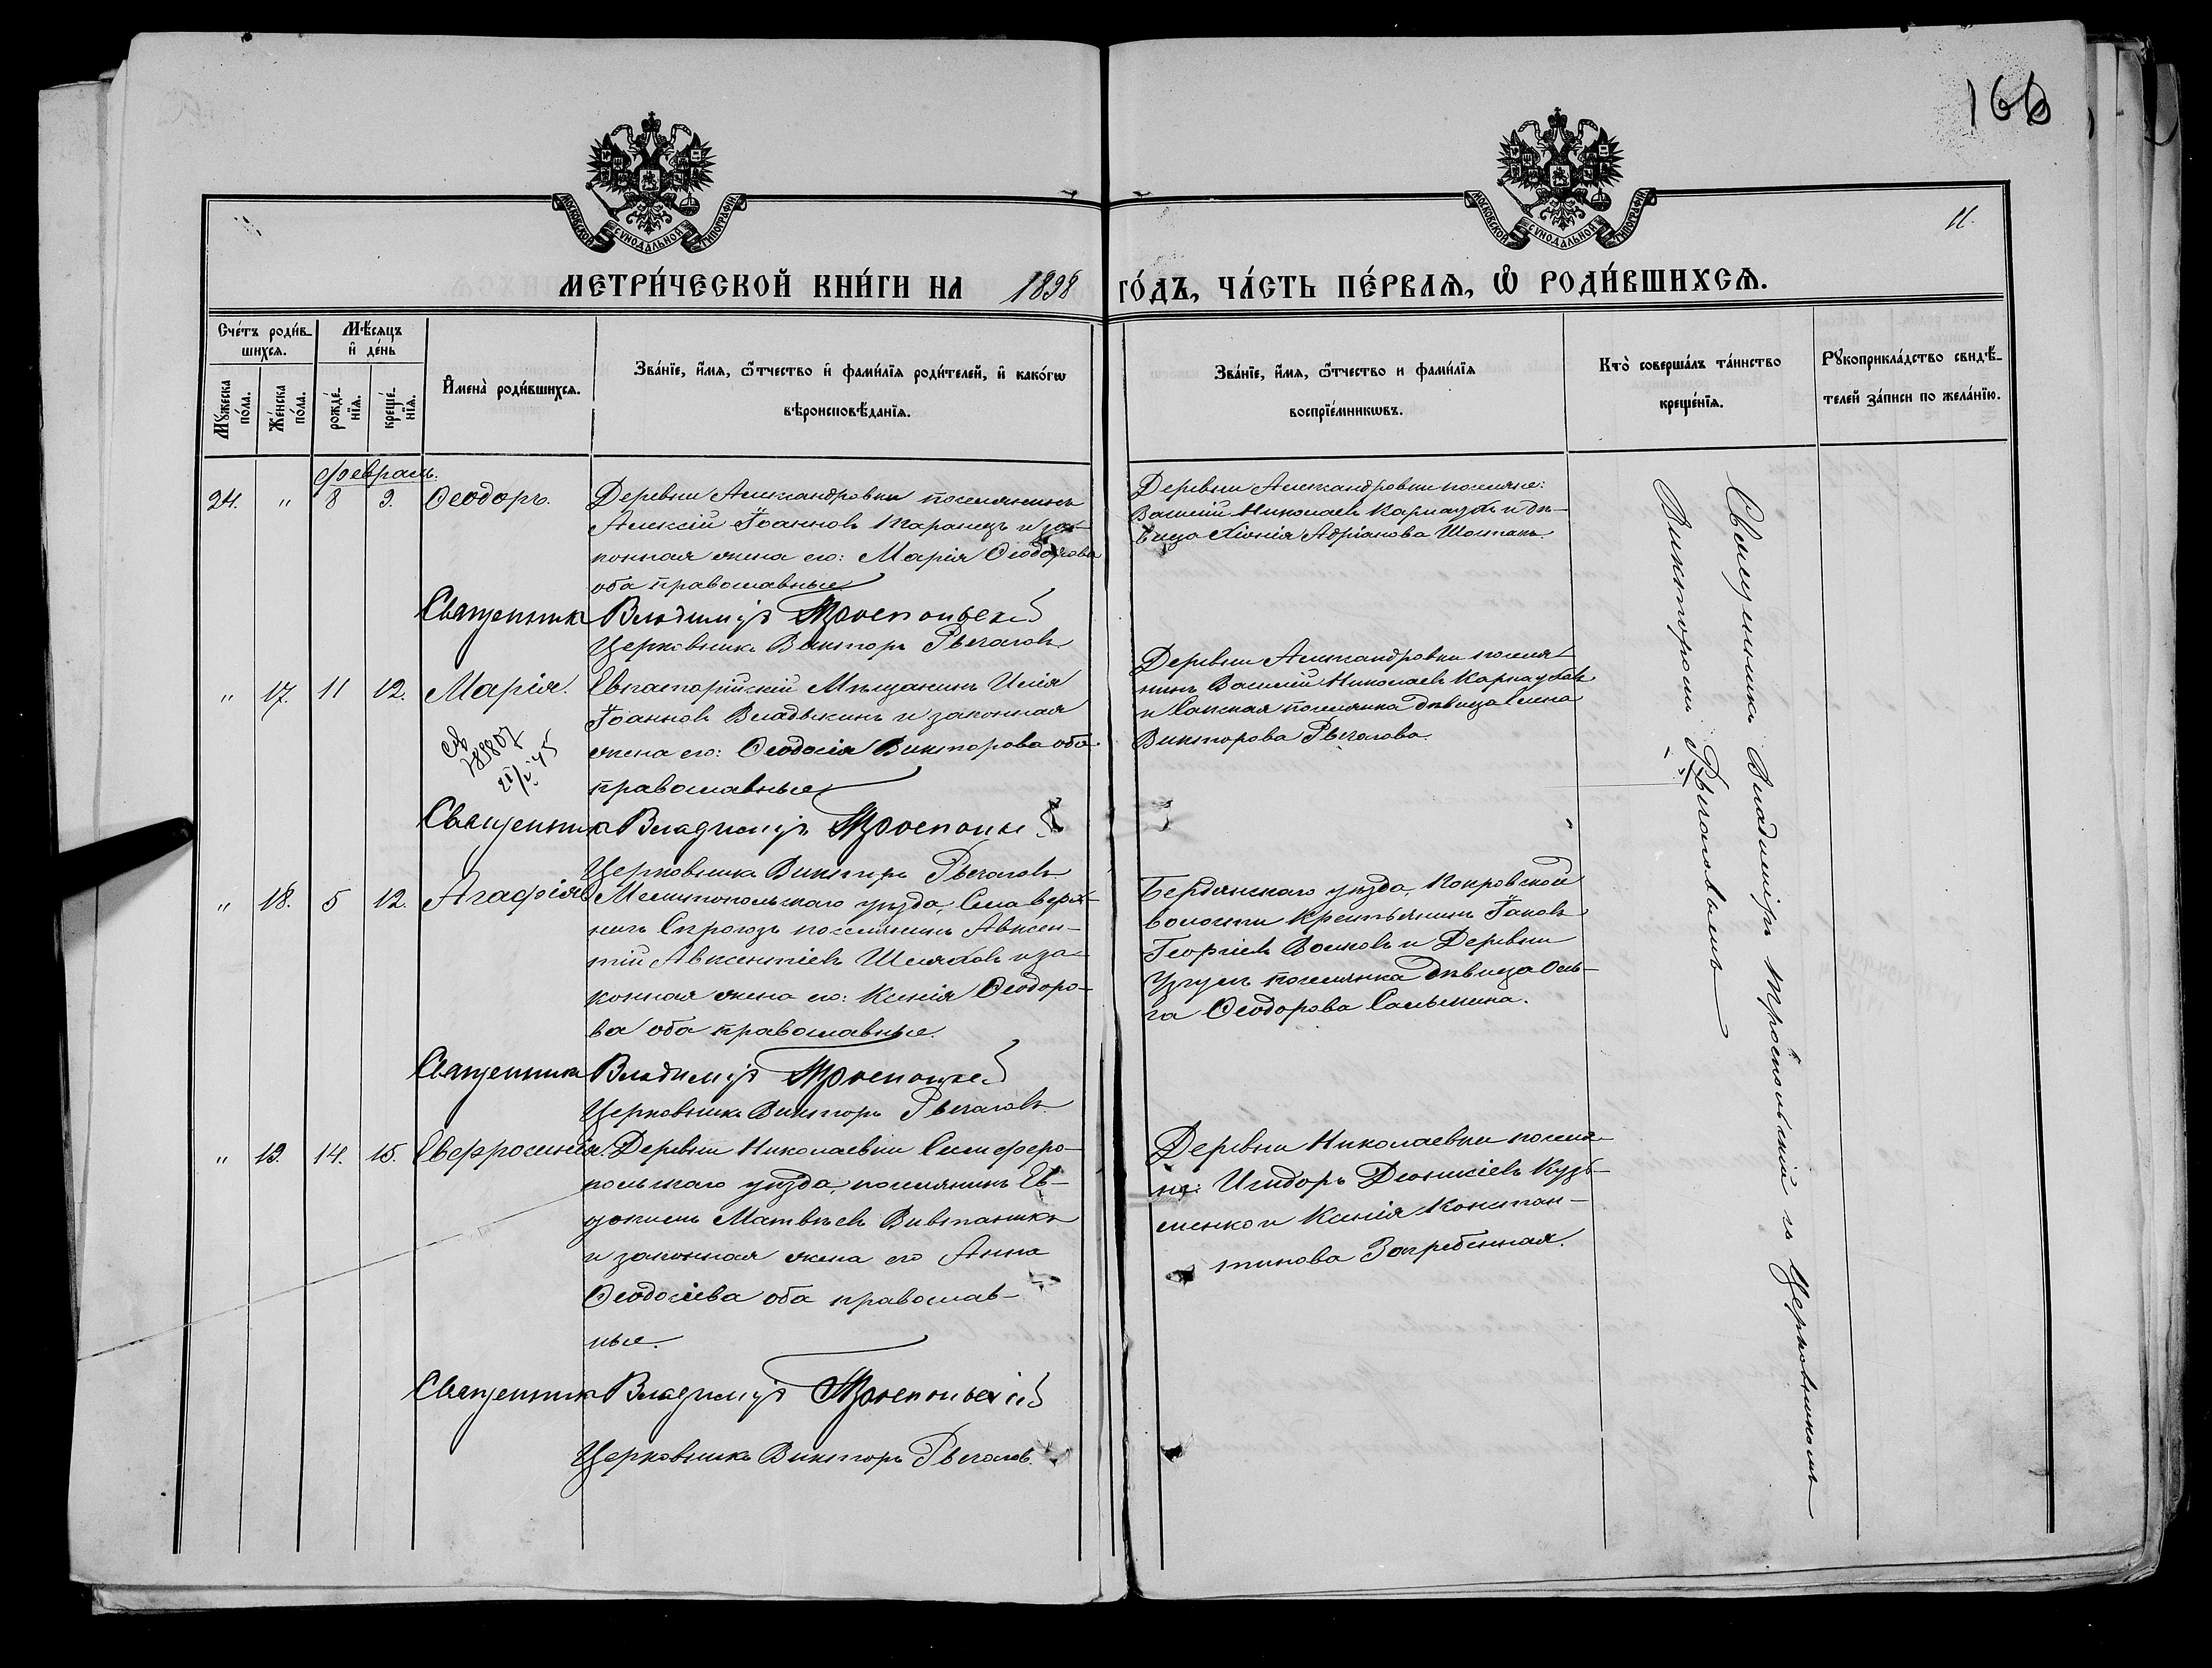 166
11.
МОСКОВСКОЙ СѴНОДАЛЬНОЙ ТИПОГРАФІИ
МОСКОВСКОЙ СѴНОДАЛЬНОЙ ТИПОГРАФІИ
МЕТРИ́ЧЕСКОЙ КНИ́ГИ НА 1898 ГО́ДЪ, ЧА́СТЬ ПЕ́РВАЯ, Ѡ РОДИ́ВШИХСЯ.
Сче́тъ роди́в-
шихся.
Мѣ́сяцъ
и де́нь
Мꙋжеска
по́ла.
Же́нска
по́ла.
рожде́-
нїя.
креще́-
нїя.
Имена̀ роди́вшихся.
Зва́нїе, и́мя, ѻ́тчество и фами́лїя роди́телей, и како́гѡ
вѣроисповѣ́данїя.
Зва́нїе, и́мя, ѻ́тчество и фами́лїя
воспрїе́мникѡвъ.
Кто̀ соверша́лъ та́инство
креще́нїя.
Рꙋкоприкла́дство свидѣ́-
телей за́писи по жела́нїю.
Февраль.
24. " 8 9. Ѳеодоръ.
Деревни Александровки поселянинъ
Алексій Іоанновъ Таранецъ и за-
конная жена его: Марія Ѳеодорова
оба православные
Священникъ Владиміръ Троепольскій
Церковникъ Викторъ Рѣчаговъ
Деревни Александровки поселяне:
Василій Николаевъ Карнаубъ и дѣ-
вица Хіонія Адріанова Шостакъ.
" 17. 11 12. Марія.
Евпаторійскій Мѣщанинъ Илія
Іоанновъ Владыкинъ и законная
жена его: Ѳеодосія Викторова оба
православные
789807
Священникъ Владиміръ Троепольскій
Церковникъ Викторъ Рѣчаговъ
Деревни Александровки поселя-
нинъ Василій Николаевъ Карнаубъ
и поселянка дѣвица Елена
Викторова Рѣчагова.
" 18. 5 12. Агафія
Мелитопольскаго уѣзда, Села Верх-
нихъ Сѣрогозъ поселянинъ Авксен-
тій Авксентіевъ Шляховъ и за-
конная жена его: Ксенія Ѳеодоро-
ва оба православные.
Священникъ Владиміръ Троепольскій
Церковникъ Викторъ Рѣчаговъ
Бердянскаго уѣзда, Покровской
волости крестьянинъ Іаковъ
Георгіевъ Волковъ и Деревни
поселянка дѣвица Оль-
га Ѳеодорова Салькина.
" 19. 14. 15. Евфросинія.
Деревни Николаевки Симферо-
польскаго уѣзда, поселянинъ Ев-
докимъ Матвѣевъ Вивтаникъ
и законная жена его Анна
Ѳеодосіева оба православ-
ные.
Священникъ Владиміръ Троепольскій
Церковникъ Викторъ Рѣчаговъ.
Деревни Николаевки поселя-
не: Исидоръ Діонисіевъ Кузь-
менко и Ксенія Констан-
тинова Загребенная.
Священникъ Владиміръ Троепольскій съ Церковникомъ
Викторомъ Рѣчаговымъ